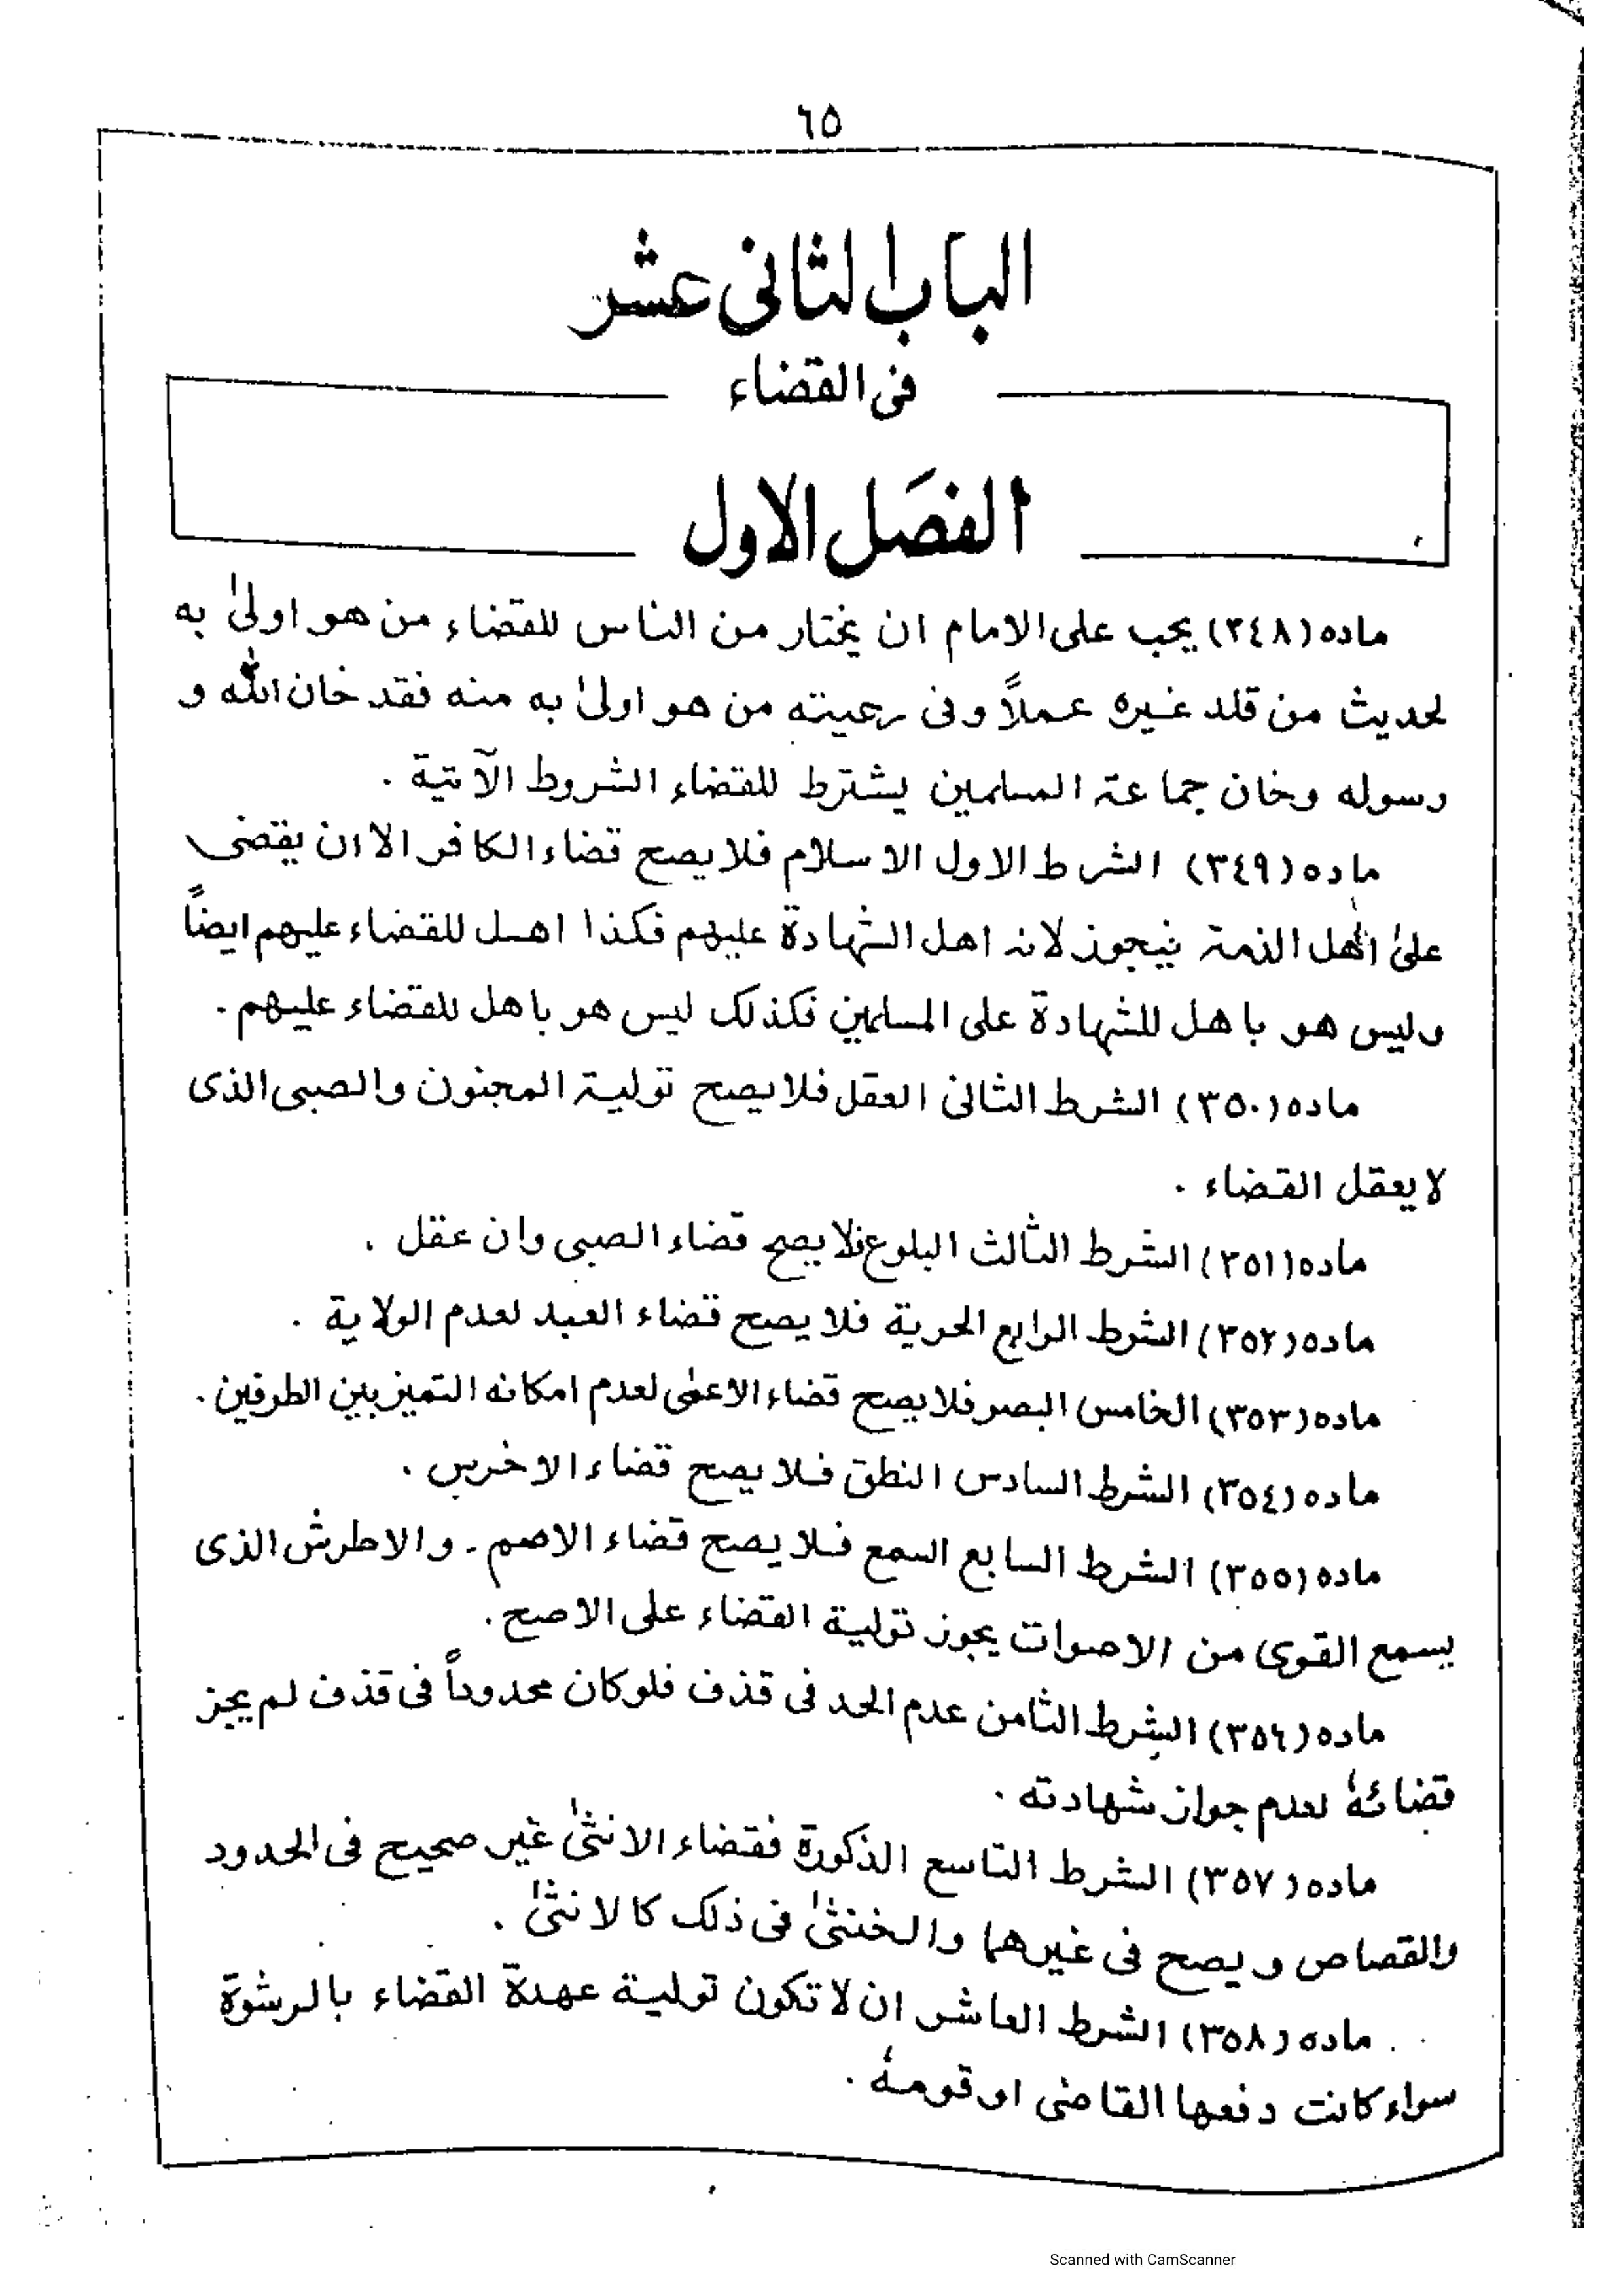 ٦٥
الباب الثانى عشر
فى القضاء
الفصَل الاول
ماده (٣٤٨) يجب على الامام ان يختار من الناس للقضاء من هو اولىٰ به
لحديث من قلد غيره عملاً وفى رعيته من هو اولىٰ به منه فقد خان الله و
رسوله وخان جماعة المسلمين يشترط للقضاء الشروط الآتية .
ماده (٣٤٩) الشرط الاول الاسلام فلا يصح قضاء الكافر الا ان يقضى
علىٰ اهل الذمة فيجوز لانه اهل الشهادة عليهم فكذا اهل للقضاء عليهم ايضاً
وليس هو باهل للشهادة على المسلمين فكذلك ليس هو باهل للقضاء عليهم .
ماده (٣٥٠) الشرط الثانى العقل فلا يصح تولية المجنون والصبى الذى
لا يعقل القضاء .
ماده (٣٥١) الشرط الثالث البلوغ فلا يصح قضاء الصبى وان عقل .
ماده (٣٥٢) الشرط الرابع الحرية فلا يصح قضاء العبد لعدم الولاية .
ماده (٣٥٣) الخامس البصر فلا يصح قضاء الاعمٰى لعدم امكانه التميز بين الطرفين .
ماده (٣٥٤) الشرط السادس النطق فلا يصح قضاء الاخرس .
ماده (٣٥٥) الشرط السابع السمع فلا يصح قضاء الاصم ـ والاطرش الذى
يسمع القوى من الاصوات يجوز تولية القضاء على الاصح .
ماده (٣٥٦) الشرط الثامن عدم الحد فى قذف فلو كان محدوداً فى قذف لم يجز
قضائهٗ لعدم جواز شهادته .
ماده (٣٥٧) الشرط التاسع الذكورة فقضاء الانثىٰ غير صحيح فى الحدود
والقصاص و يصح فى غيرهما والخنثىٰ فى ذلك كالانثىٰ .
ماده (٣٥٨) الشرط العاشر ان لا تكون تولية عهدة القضاء بالرشوة
سواء كانت دفعها القاضى او قومهٗ .
Scanned with CamScanner